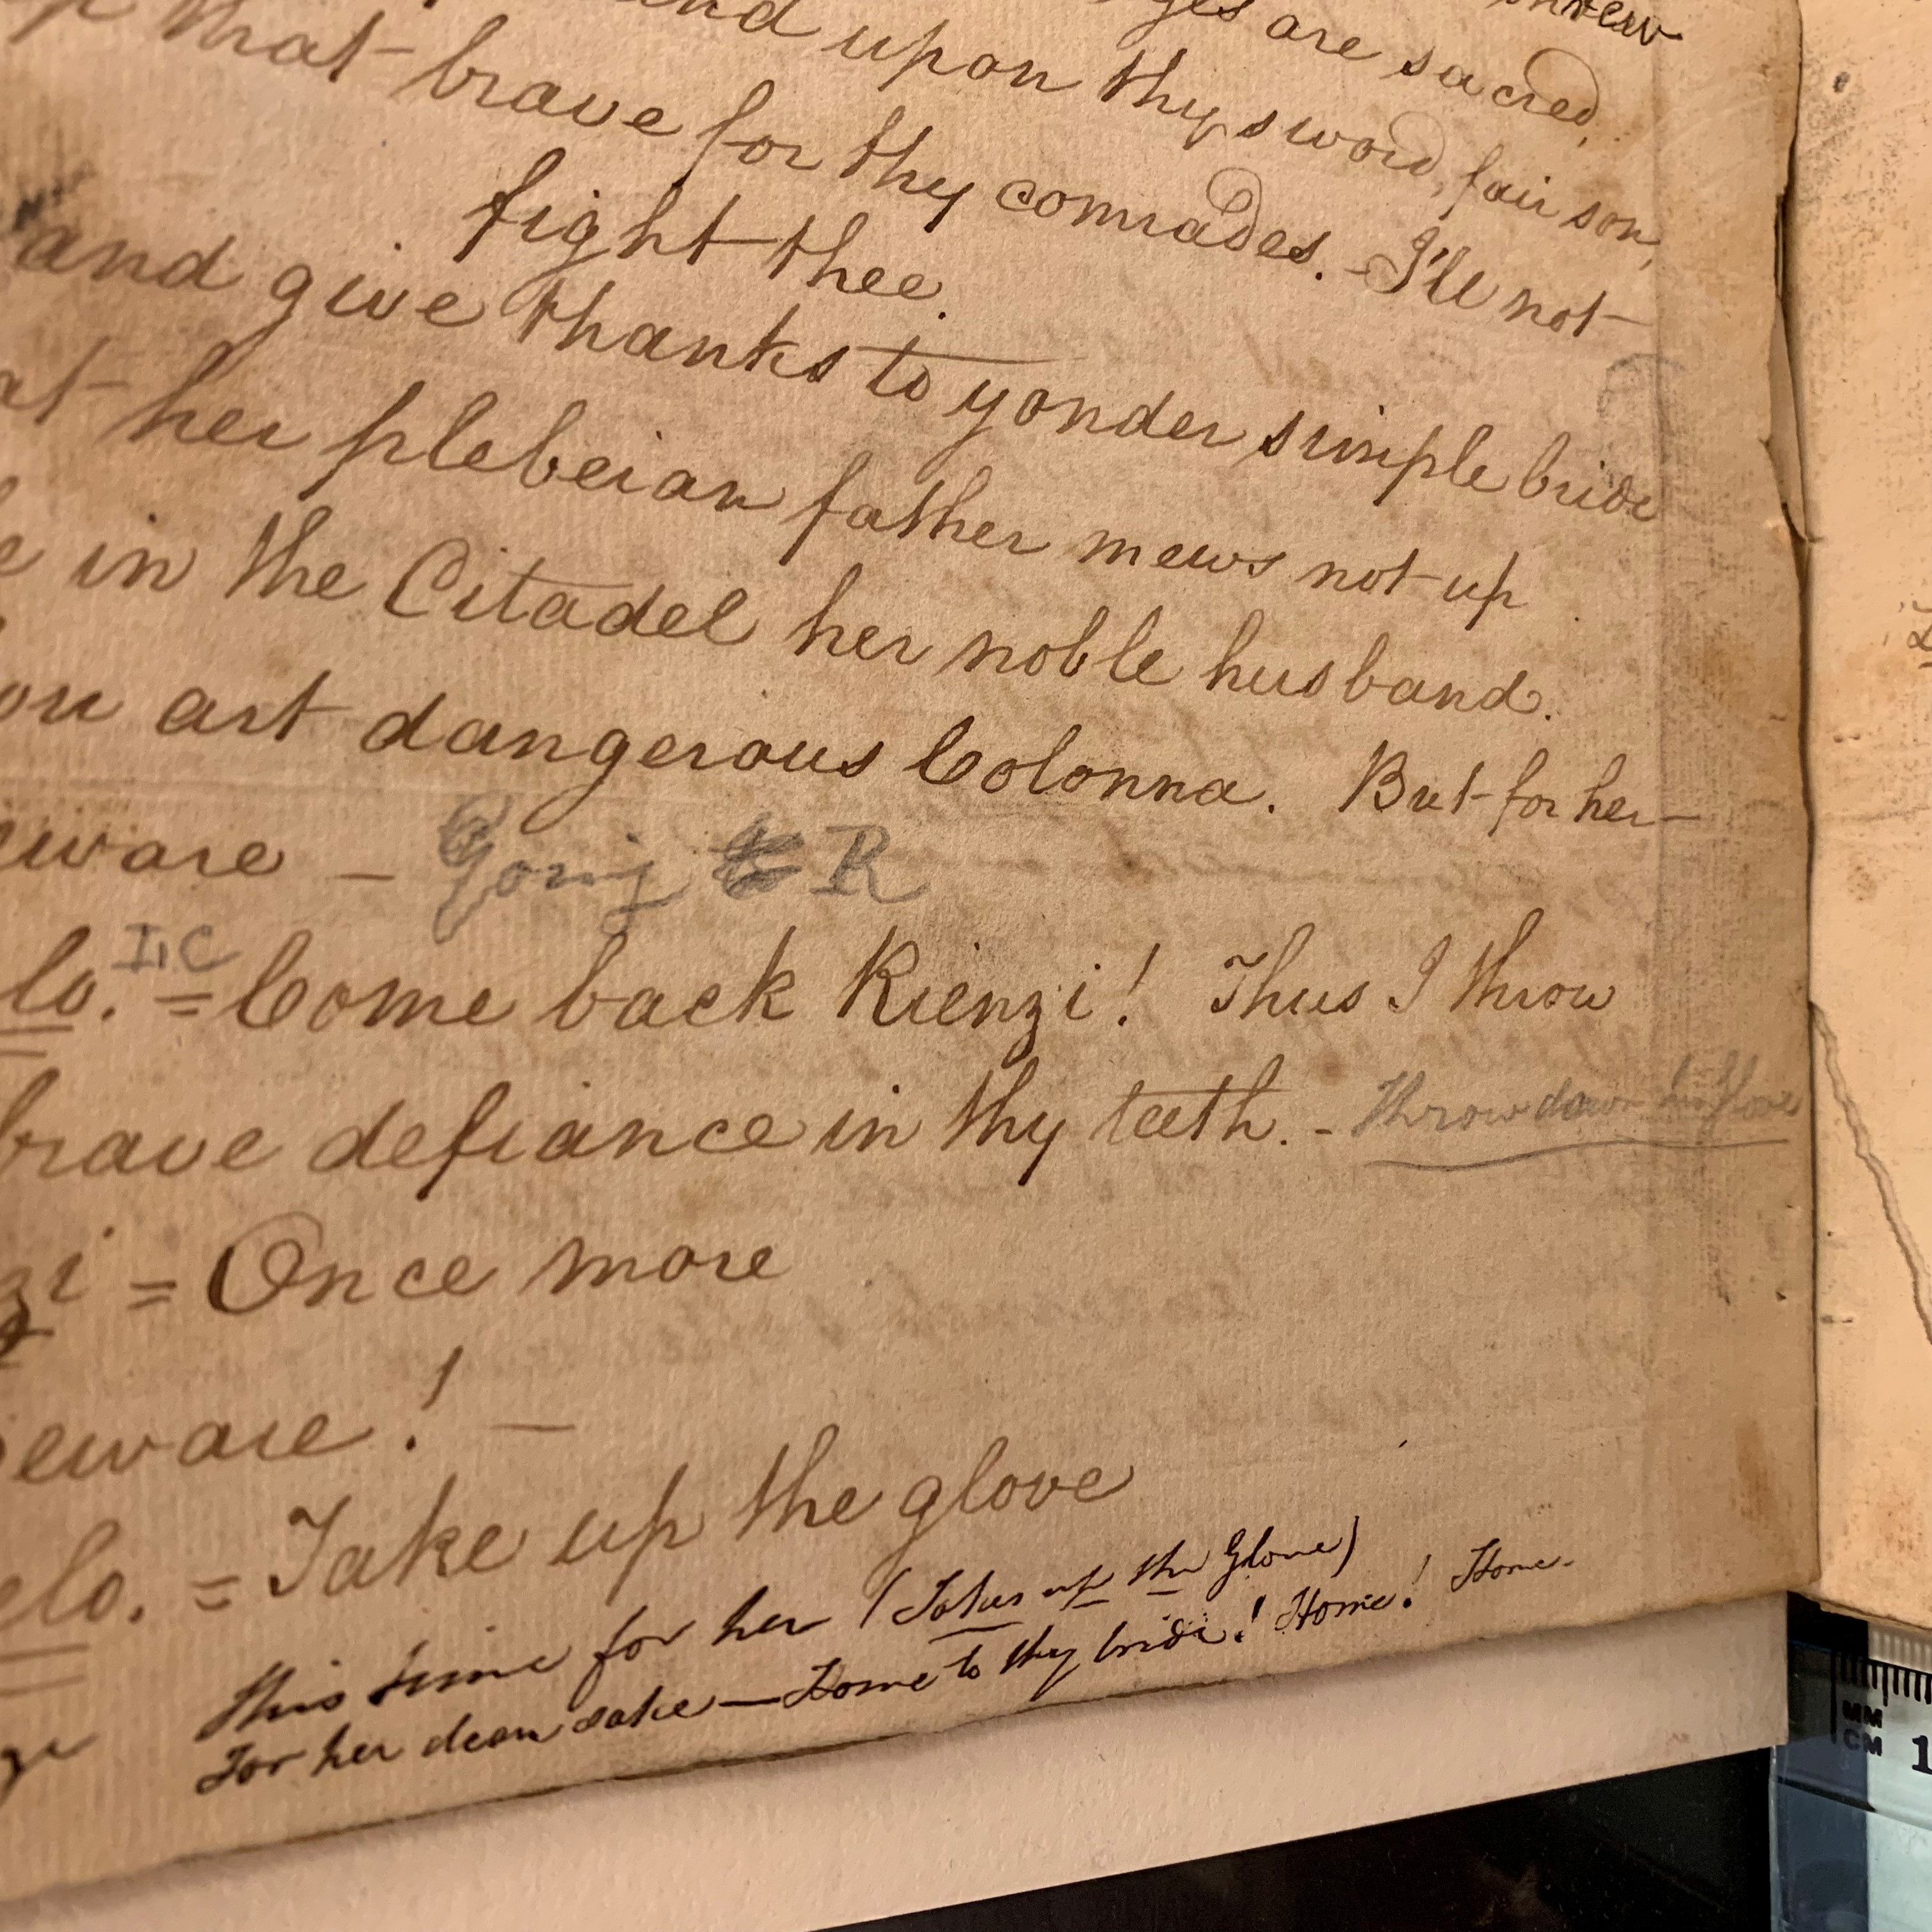 are sacred,
upon thy sword, fair son,
that brave for thy comrades. - I'll not
fight thee.
and give thanks to yonder simple bride
her plebeian father mews not up
in the Citadel her noble husband.
art dangerous Colonna. But for her —
eware — Going R
lo. = Come back Rienzi! Thus I throw
I, C
brave defiance in thy teeth. - Throw down his Glove
zi = Once more
eware! —
elo. = Take up the glove
This time for her (Takes up the Glove)
For her dear sake — Home to thy bride! Home! Home.
MM
CM 1